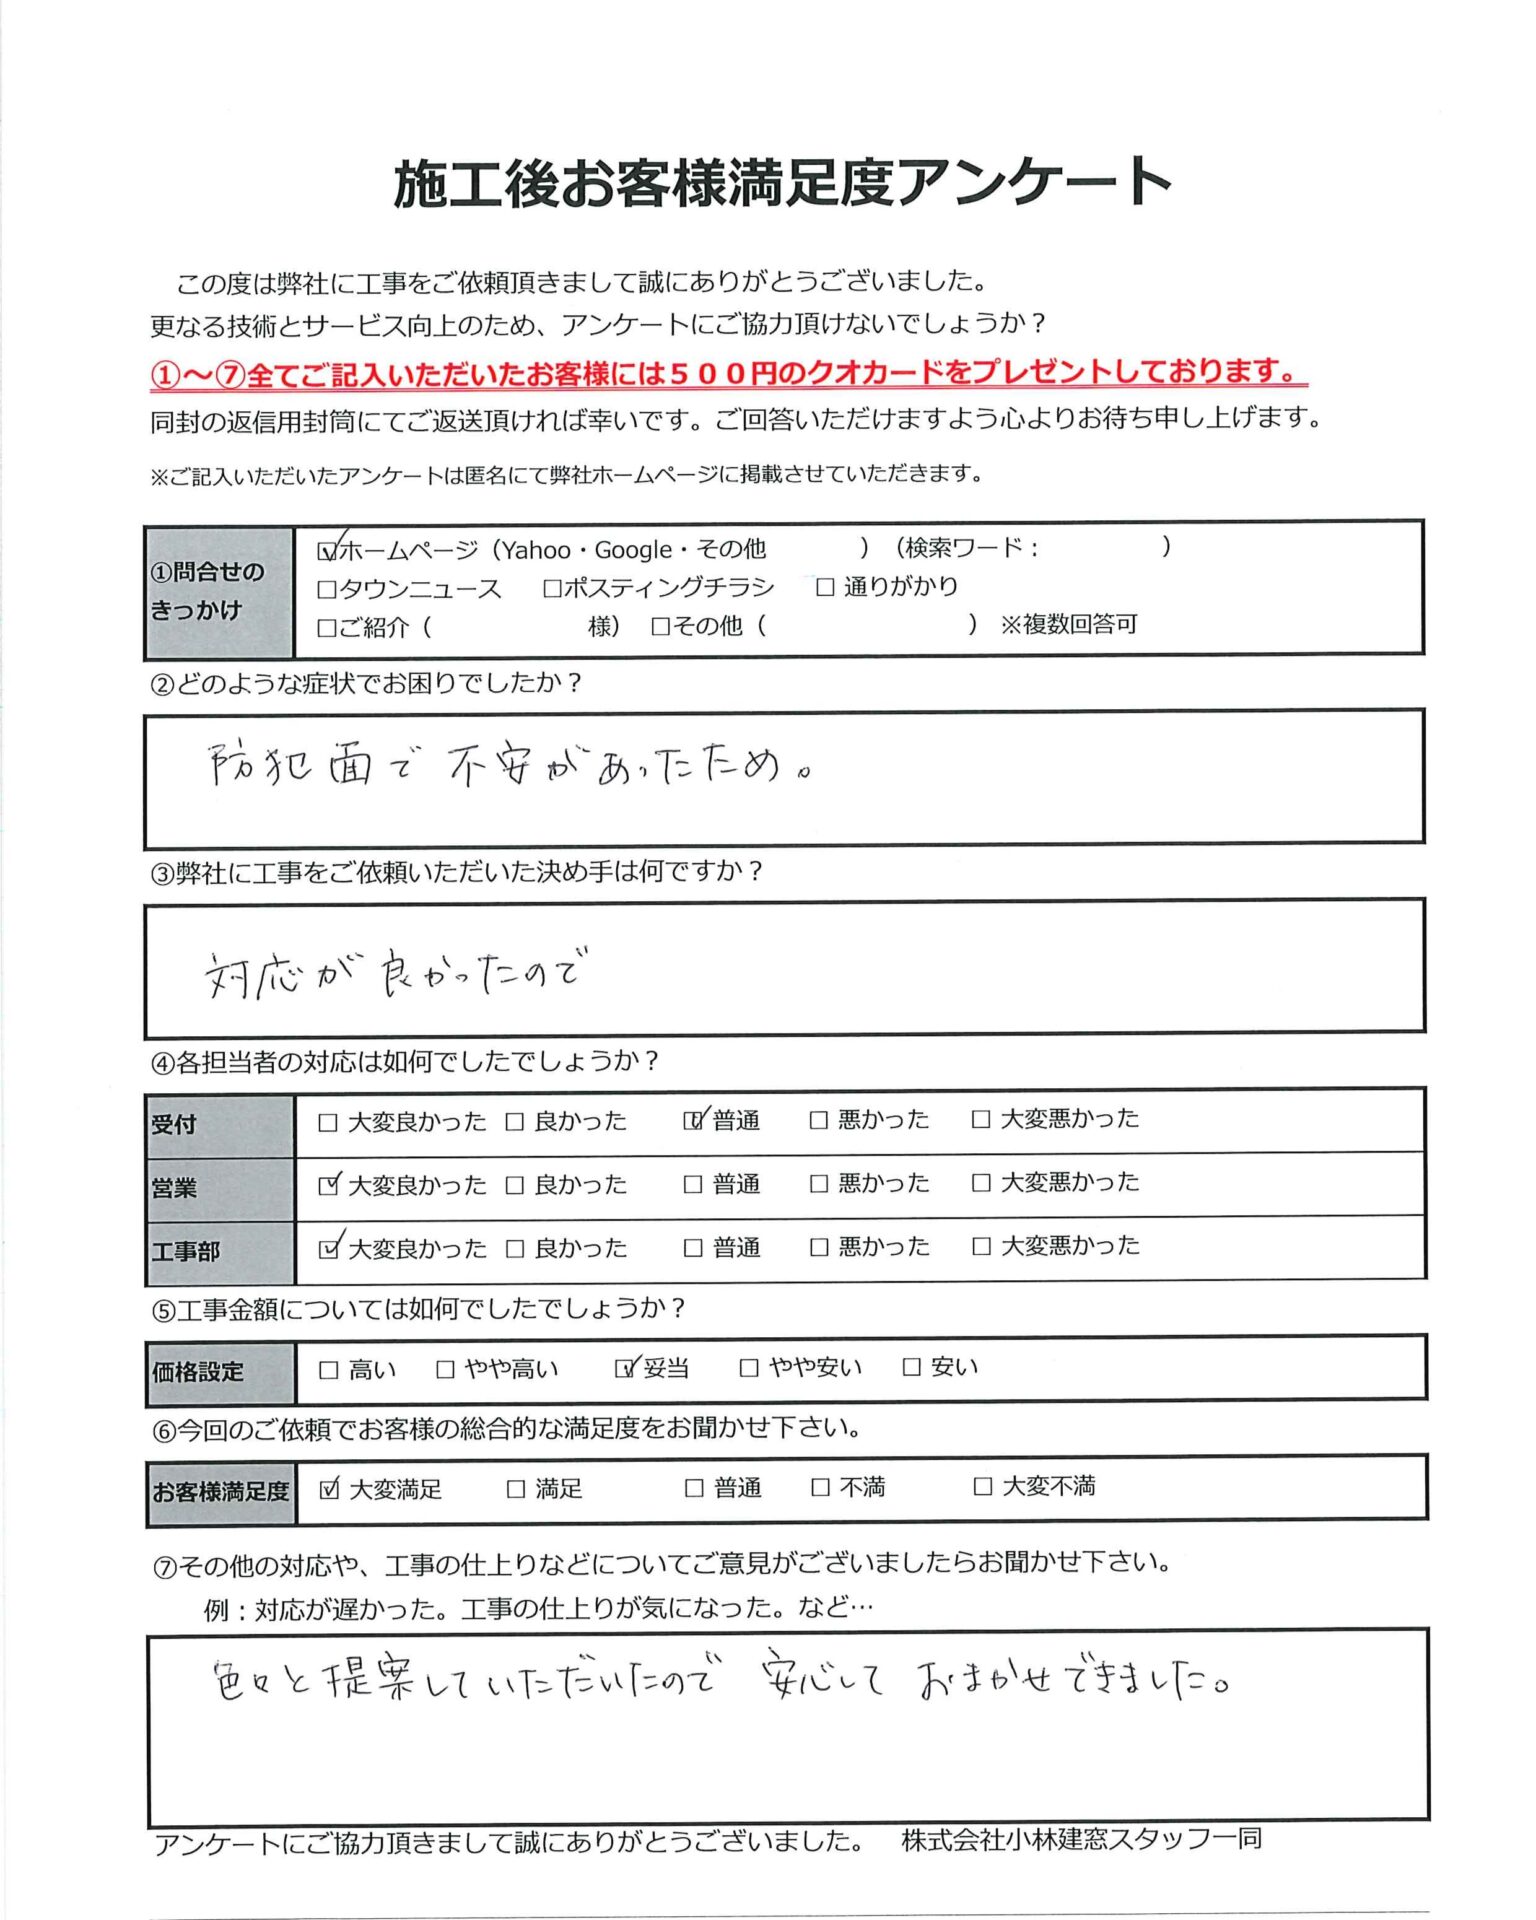 施工後お客様満足度アンケート
この度は弊社に工事をご依頼頂きまして誠にありがとうございました。
更なる技術とサービス向上のため、アンケートにご協力頂けないでしょうか？
①～⑦全てご記入いただいたお客様には５００円のクオカードをプレゼントしております。
同封の返信用封筒にてご返送頂ければ幸いです。ご回答いただけますよう心よりお待ち申し上げます。
※ご記入いただいたアンケートは匿名にて弊社ホームページに掲載させていただきます。
①問合せの
きっかけ
☑ホームページ（Yahoo・Google・その他　　　　）（検索ワード：　　　　　）
□タウンニュース　□ポスティングチラシ　□ 通りがかり
□ご紹介（　　　　　　様）　□その他（　　　　　　　　）　※複数回答可
②どのような症状でお困りでしたか？
防犯面で不安があったため。
③弊社に工事をご依頼いただいた決め手は何ですか？
対応が良かったので
④各担当者の対応は如何でしたでしょうか？
受付　□ 大変良かった　□ 良かった　☑ 普通　□ 悪かった　□ 大変悪かった
営業　☑ 大変良かった　□ 良かった　□ 普通　□ 悪かった　□ 大変悪かった
工事部　☑ 大変良かった　□ 良かった　□ 普通　□ 悪かった　□ 大変悪かった
⑤工事金額については如何でしたでしょうか？
価格設定　□ 高い　□ やや高い　☑ 妥当　□ やや安い　□ 安い
⑥今回のご依頼でお客様の総合的な満足度をお聞かせ下さい。
お客様満足度　☑ 大変満足　□ 満足　□ 普通　□ 不満　□ 大変不満
⑦その他の対応や、工事の仕上りなどについてご意見がございましたらお聞かせ下さい。
例：対応が遅かった。工事の仕上りが気になった。など…
色々と提案していただいたので 安心して おまかせできました。
アンケートにご協力頂きまして誠にありがとうございました。　株式会社小林建窓スタッフ一同